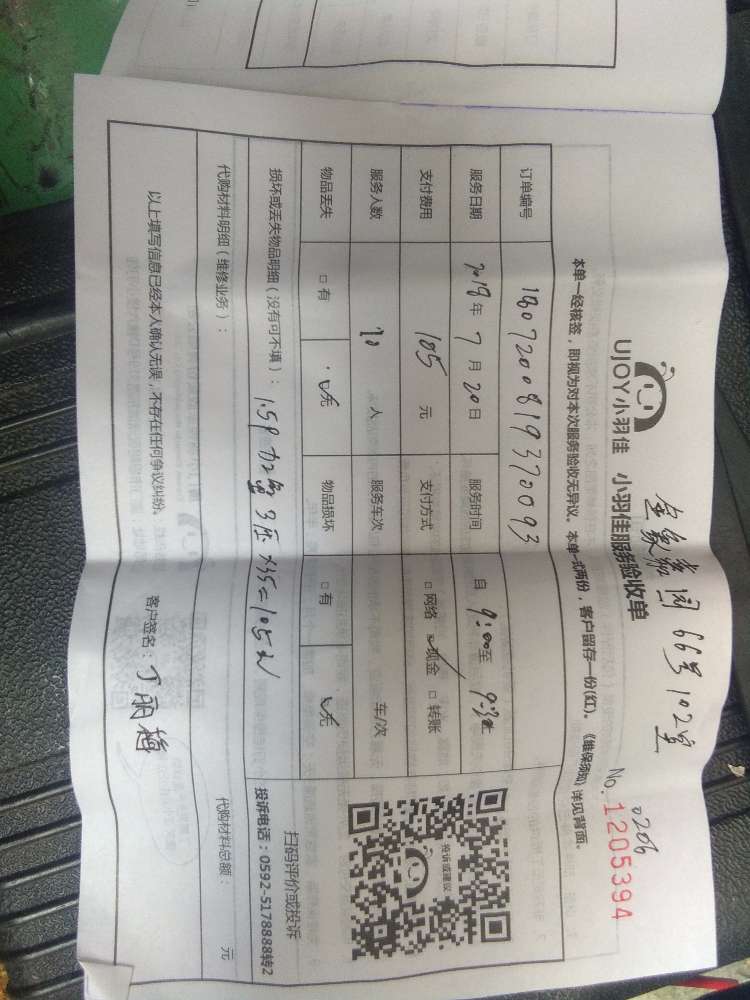 66号102室
0206
UJOY小羽佳 小羽佳服务验收单
No. 1205394
本单一经核签，即视为对本次服务验收无异议。本单一式两份，客户留存一份(红)。《维保须知》详见背面。
订单编号 1807200819370093
服务日期 2018年7月20日 服务时间 自9:00至9:30止
支付费用 105元 支付方式 □网络 ☑现金 □转账
服务人数 人 服务车次 车/次
物品丢失 □有 ☑无 物品损坏 □有 ☑无
损坏或丢失物品明细（没有可不填）： 1.5P 3压×35=105元
代购材料明细（维修业务）： 代购材料总额： 元
以上填写信息已经本人确认无误，不存在任何争议纠纷。 客户签名：丁丽梅
投诉或建议
扫码评价或投诉
投诉电话：0592-5178888转2